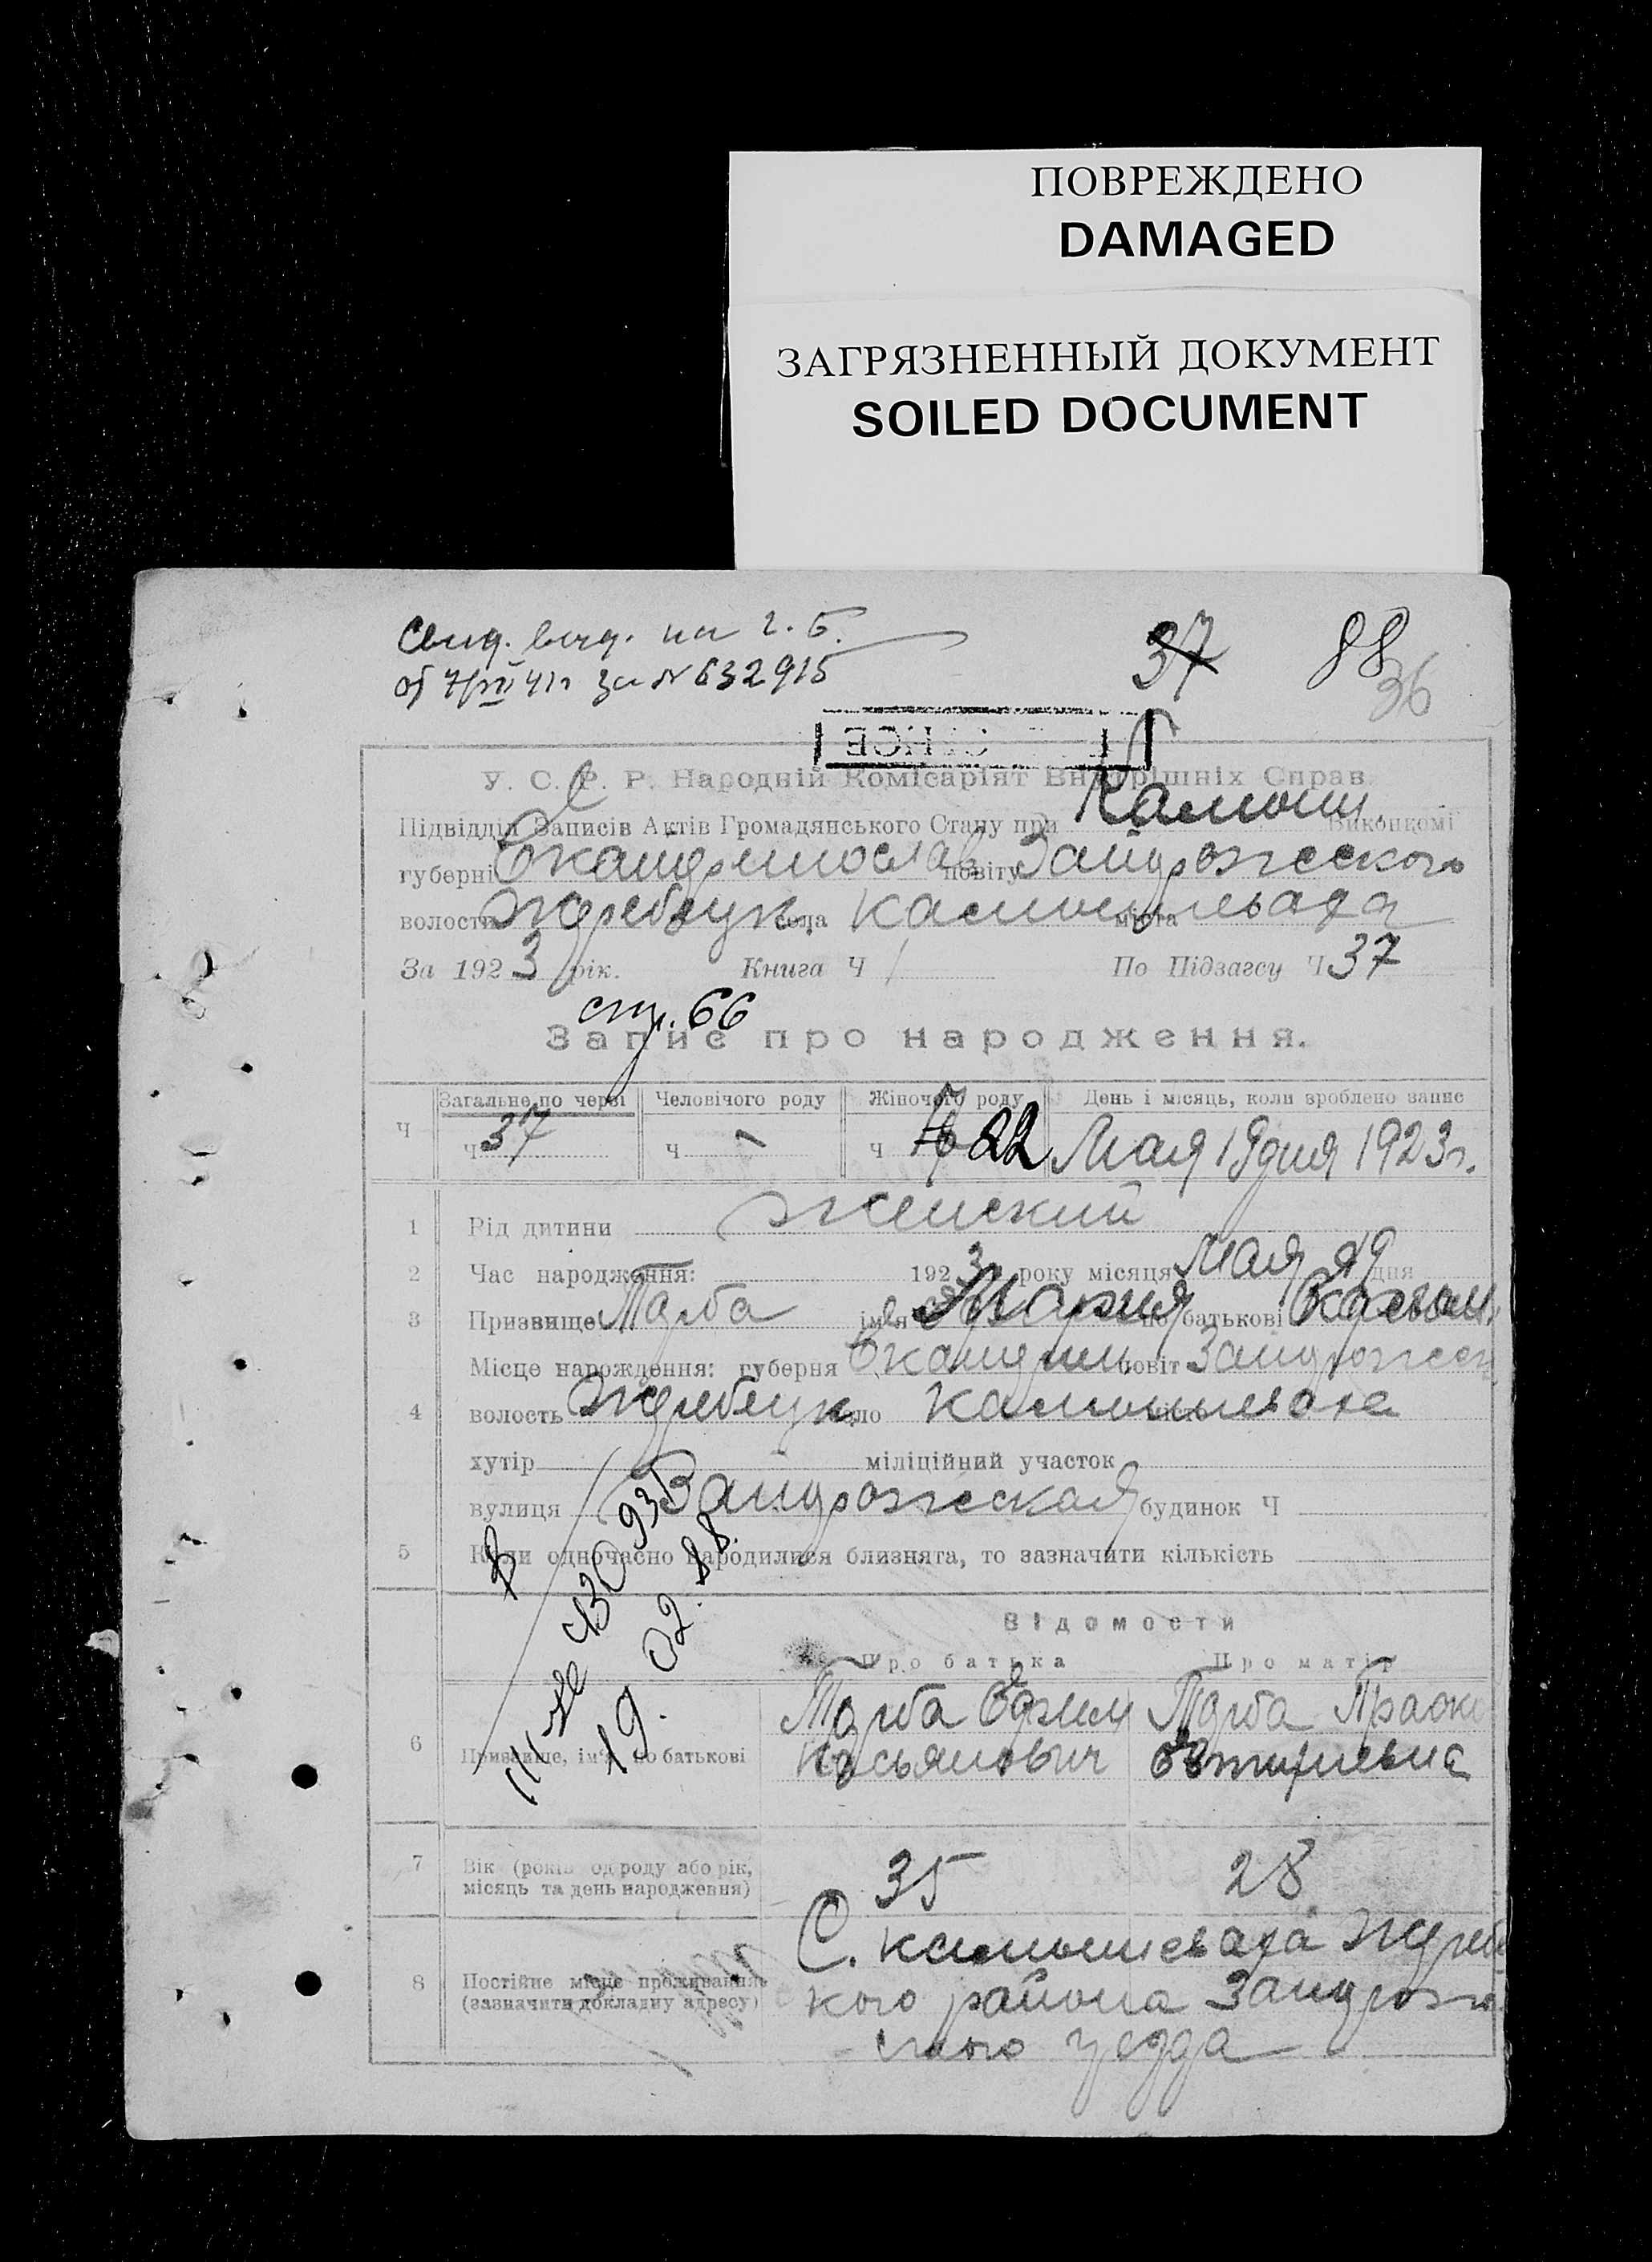 ПОВРЕЖДЕНО
DAMAGED
ЗАГРЯЗНЕННЫЙ ДОКУМЕНТ
SOILED DOCUMENT
37 88
36
за № 632915
У. С. Р. Р. Народній Комісаріят Внутрішніх Справ.
Підвідділ Записів Актів Громадянського Стану при Камыш. Виконкомі
губерні Екатеринослав повіту Запорожского
волости Жеребецк. села Камышеваха міста
За 1923 рік. Книга Ч 1 По Підзагсу Ч 37
стр. 66
Запис про народження.
Ч Загальне по черзі Человічого роду Жіночого роду День і місяць, коли зроблено запис
ч 37 ч — ч 22 Мая 19 дня 1923 г.
1 Рід дитини женский
2 Час народження: 1923 року місяця Мая 19 дня
3 Призвище Торба ім'я Мария по батькові
Місце нарождення: губерня Екатерин. повіт Запорожск
4 волость Жеребецк. село Камышеваха
хутір міліційний участок
вулиця Запорожская будинок Ч
5 Коли одночасно народилися близнята, то зазначити кількість
111 № 430931
19. 02. 88.
Відомости
Про батька Про матір
6 Призвище, ім'я, по батькові Торба Ефим Касьянович Торба Праск
7 Вік (років од роду або рік, місяць та день народження) 35 28
8 Постійне місце проживання (зазначити докладну адресу) С. Камышеваха Жереб
кого района Запорож
ского уезда